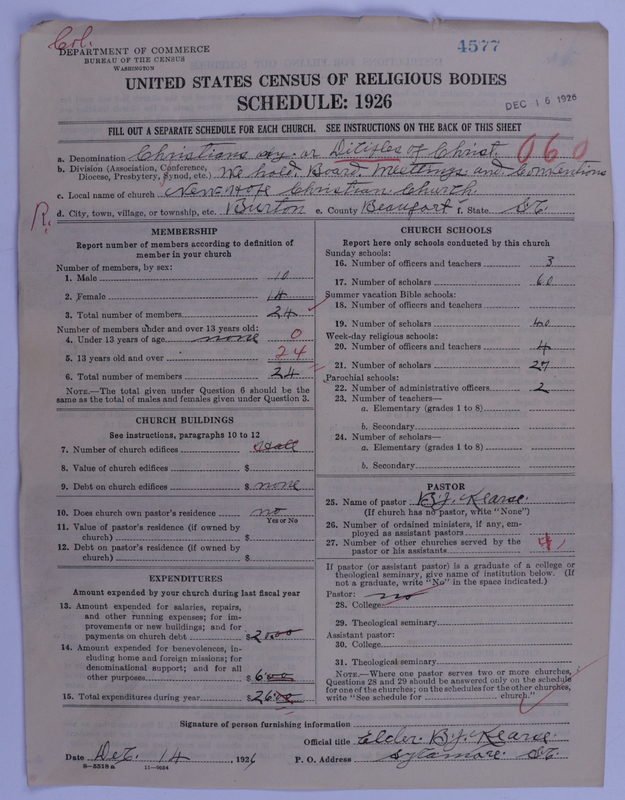 Col.
DEPARTMENT OF COMMERCE
BUREAU OF THE CENSUS
WASHINGTON
4577
UNITED STATES CENSUS OF RELIGIOUS BODIES
SCHEDULE: 1926
DEC 16 1926
FILL OUT A SEPARATE SCHEDULE FOR EACH CHURCH. SEE INSTRUCTIONS ON THE BACK OF THIS SHEET
a. Denomination Christians or Diciples of Christ 060
b. Division (Association, Conference, Diocese, Presbytery, Synod, etc.) We hold Board Meetings and Conventions
c. Local name of church New Hope Christian Church
R. d. City, town, village, or township, etc. Burton e. County Beaufort f. State
MEMBERSHIP
Report number of members according to definition of member in your church
Number of members, by sex:
1. Male 10
2. Female 14
3. Total number of members 24
Number of members under and over 13 years old:
4. Under 13 years of age none 0
5. 13 years old and over 24
6. Total number of members 24
NOTE.—The total given under Question 6 should be the same as the total of males and females given under Question 3.
CHURCH BUILDINGS
See instructions, paragraphs 10 to 12
7. Number of church edifices Hall
8. Value of church edifices $
9. Debt on church edifices $ none
10. Does church own pastor's residence no
Yes or No
11. Value of pastor's residence (if owned by church) $
12. Debt on pastor's residence (if owned by church) $
EXPENDITURES
Amount expended by your church during last fiscal year
13. Amount expended for salaries, repairs, and other running expenses; for improvements or new buildings; and for payments on church debt $
14. Amount expended for benevolences, including home and foreign missions; for denominational support; and for all other purposes $ 6 00
15. Total expenditures during year $ 26 00
CHURCH SCHOOLS
Report here only schools conducted by this church
Sunday schools:
16. Number of officers and teachers 3
17. Number of scholars 60
Summer vacation Bible schools:
18. Number of officers and teachers
19. Number of scholars 40
Week-day religious schools:
20. Number of officers and teachers 4
21. Number of scholars 27
Parochial schools:
22. Number of administrative officers 2
23. Number of teachers—
a. Elementary (grades 1 to 8)
b. Secondary
24. Number of scholars—
a. Elementary (grades 1 to 8)
b. Secondary
PASTOR
25. Name of pastor B.J. Kearse
(If church has no pastor, write "None")
26. Number of ordained ministers, if any, employed as assistant pastors
27. Number of other churches served by the pastor or his assistants 4
If pastor (or assistant pastor) is a graduate of a college or theological seminary, give name of institution below. (If not a graduate, write "No" in the space indicated.)
Pastor: no
28. College
29. Theological seminary
Assistant pastor:
30. College
31. Theological seminary
NOTE.—Where one pastor serves two or more churches, Questions 28 and 29 should be answered only on the schedule for one of the churches; on the schedules for the other churches, write "See schedule for church."
Signature of person furnishing information
Official title Elder B.J. Kearse
Date Dec. 14, 1926 P. O. Address Sycamore
8—5518a 11—9024